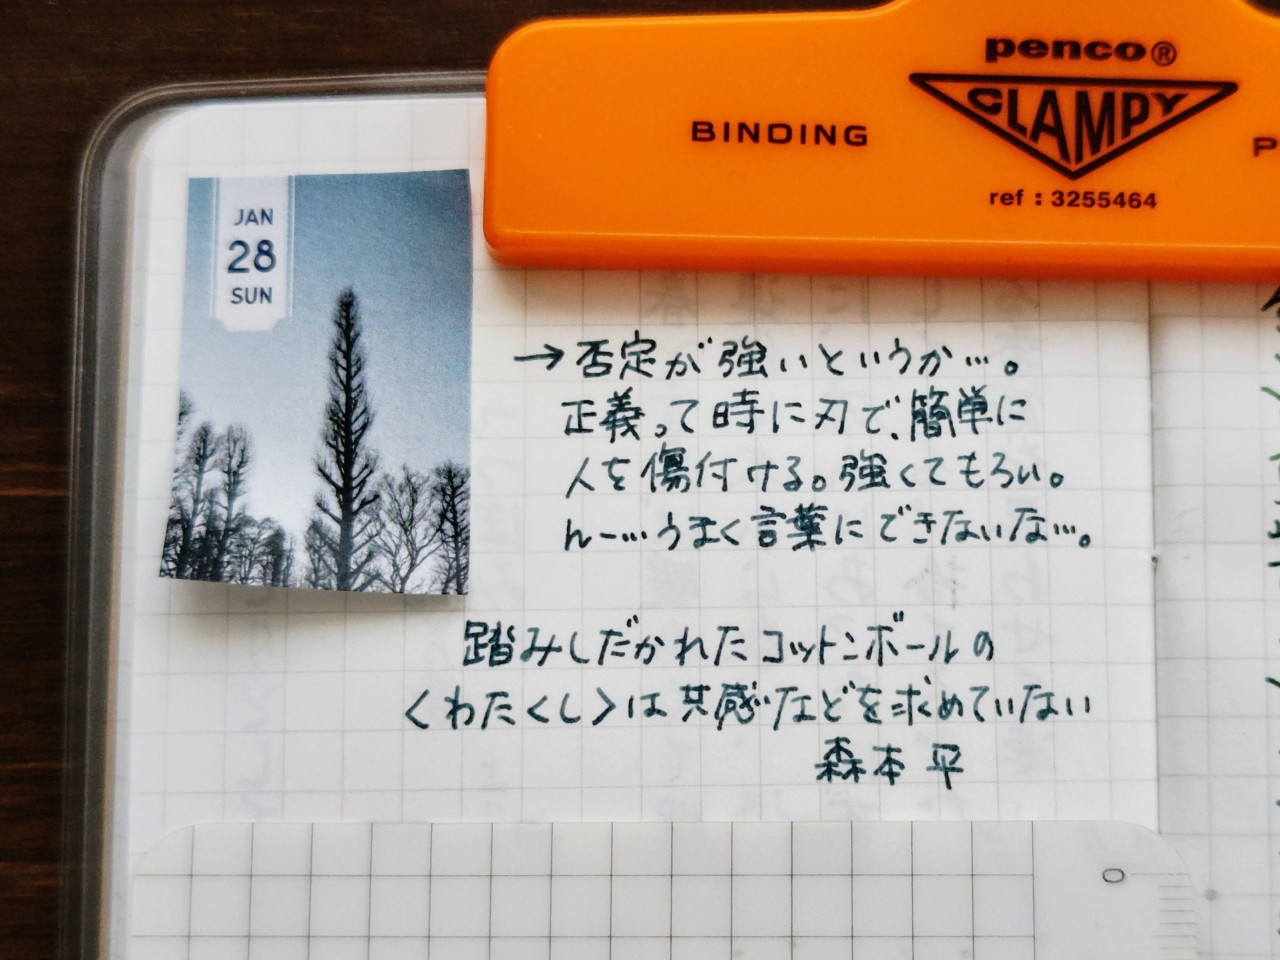 penco®
CLAMPY
BINDING
P
ref : 3255464
JAN
28
SUN
→否定が強いというか…。
正義って時に刃で、簡単に
人を傷付ける。強くてもろい。
んー…うまく言葉にできないな…。
踏みしだかれたコットンボールの
〈わたくし〉は共感などを求めていない
森本平
0